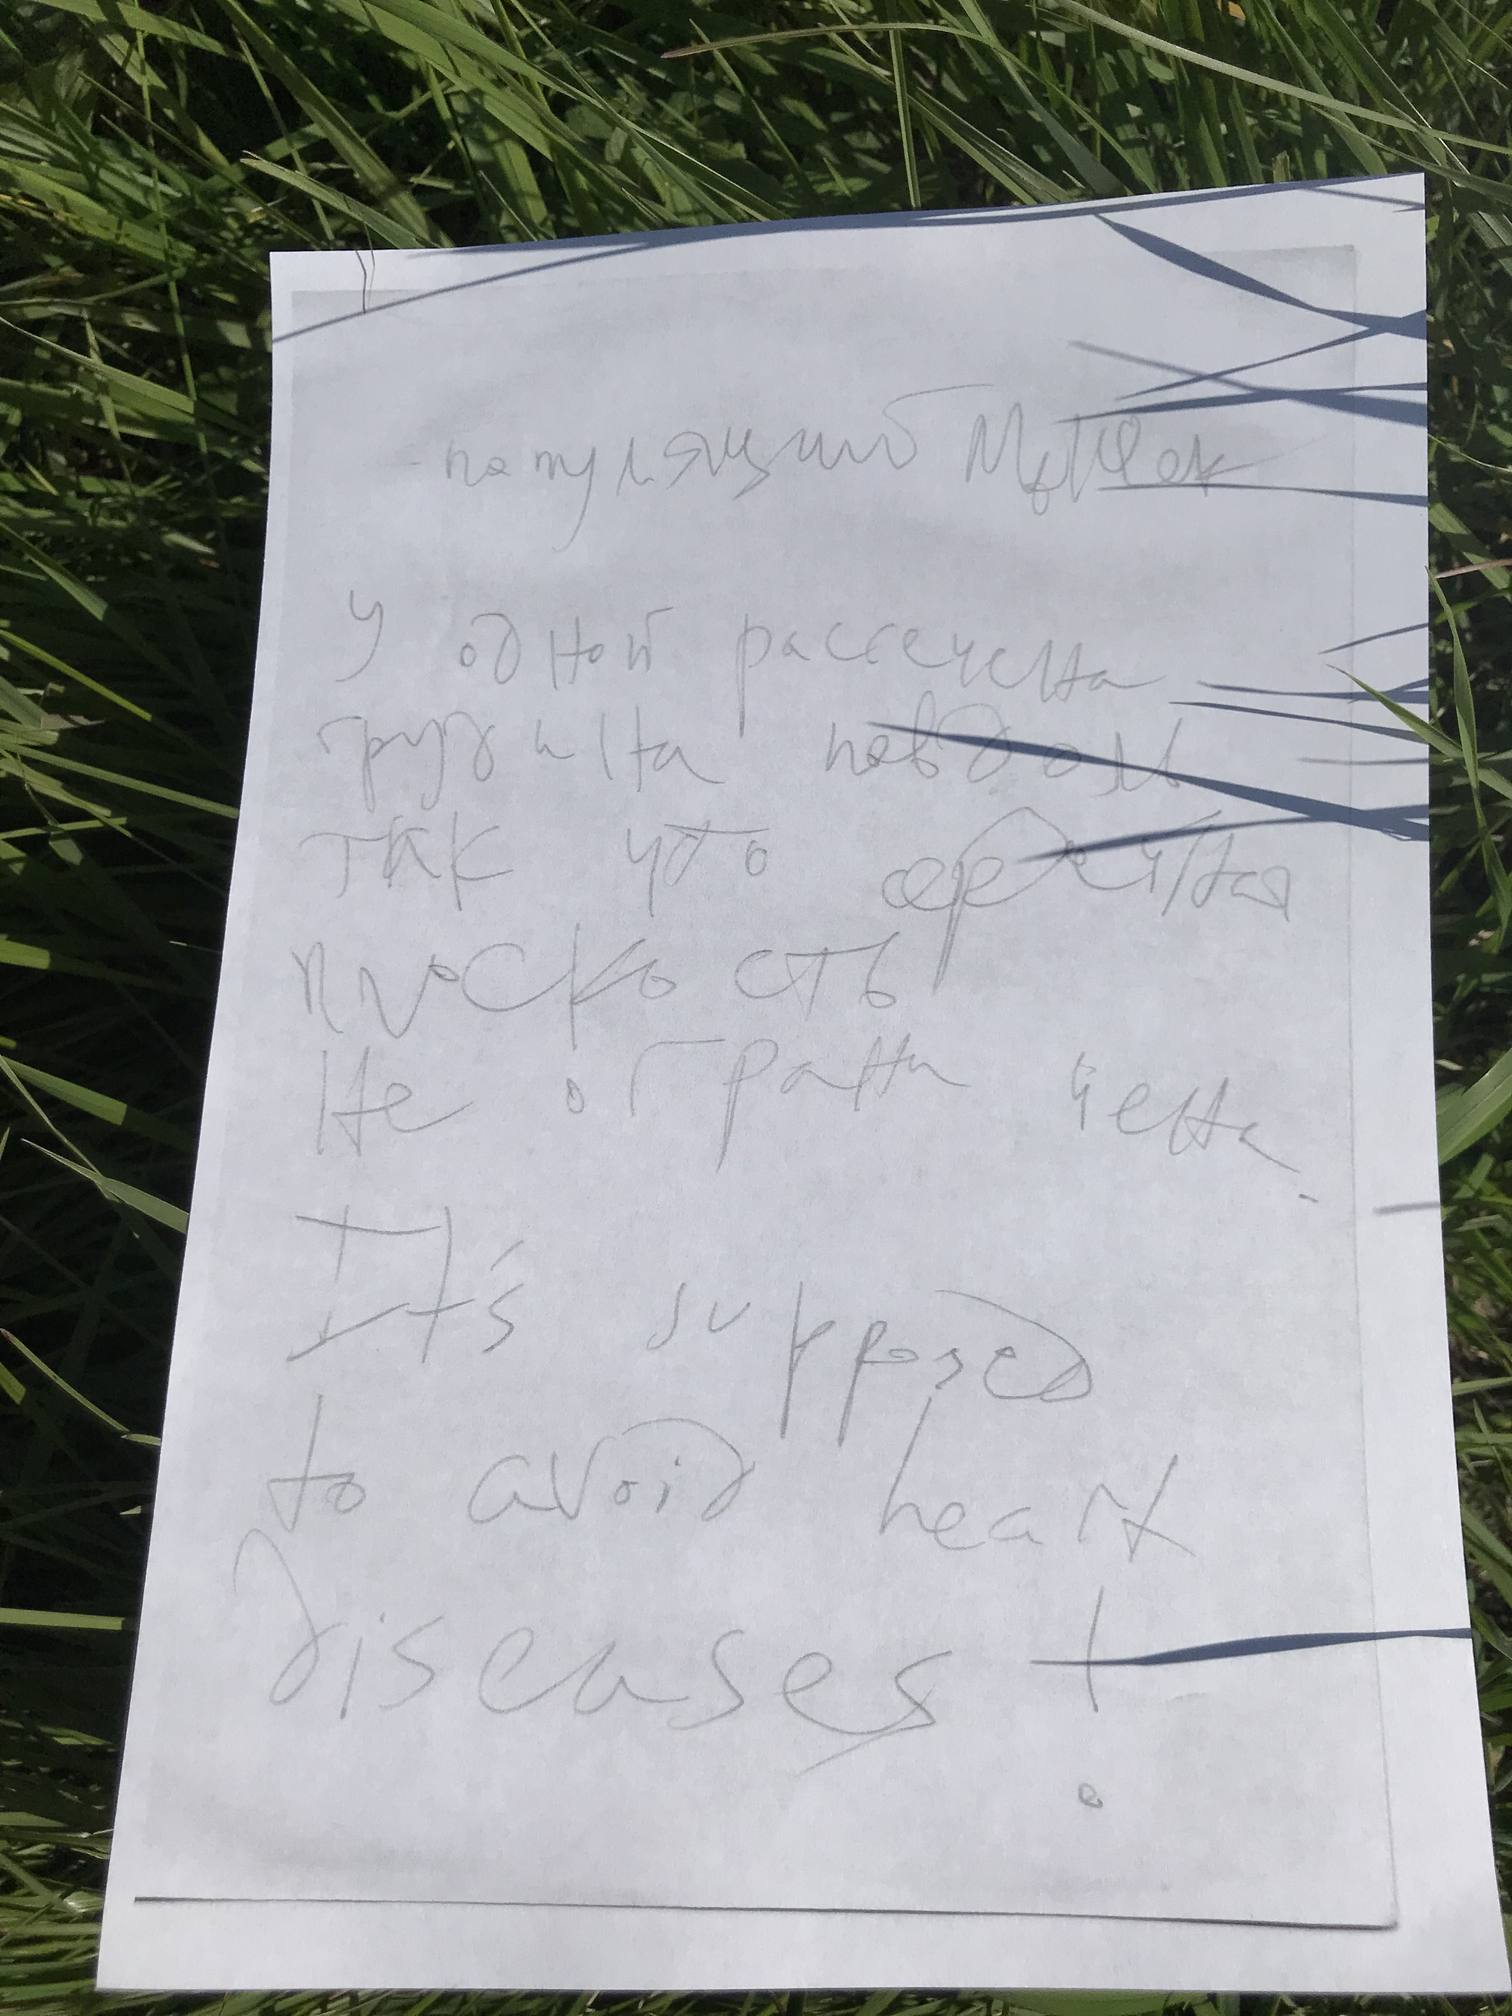 - популяций маток
У одной рассечена
грудина повдоль
так что сердечная
плоскость
не ограничена.
It's supposed
to avoid heart
diseases!